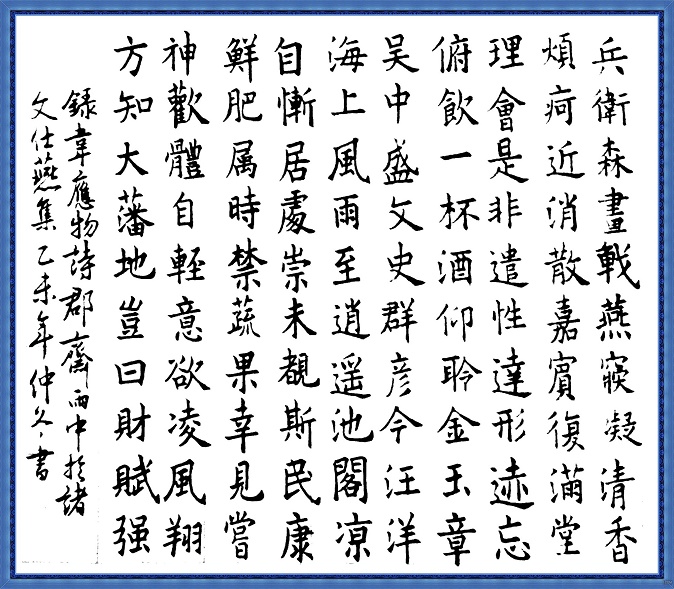 兵衛森畫戟燕寢凝清香
煩疴近消散嘉賓復滿堂
理會是非遣性達形迹忘
俯飲一杯酒仰聆金玉章
吳中盛文史群彦今汪洋
海上風雨至逍遥池閣凉
自慚居處崇未覩斯民康
鮮肥属時禁蔬果幸見嘗
神歡體自輕意欲凌風翔
方知大藩地豈曰財賦强
録韋應物詩郡齋雨中於諸
文仕燕集乙未年仲冬書